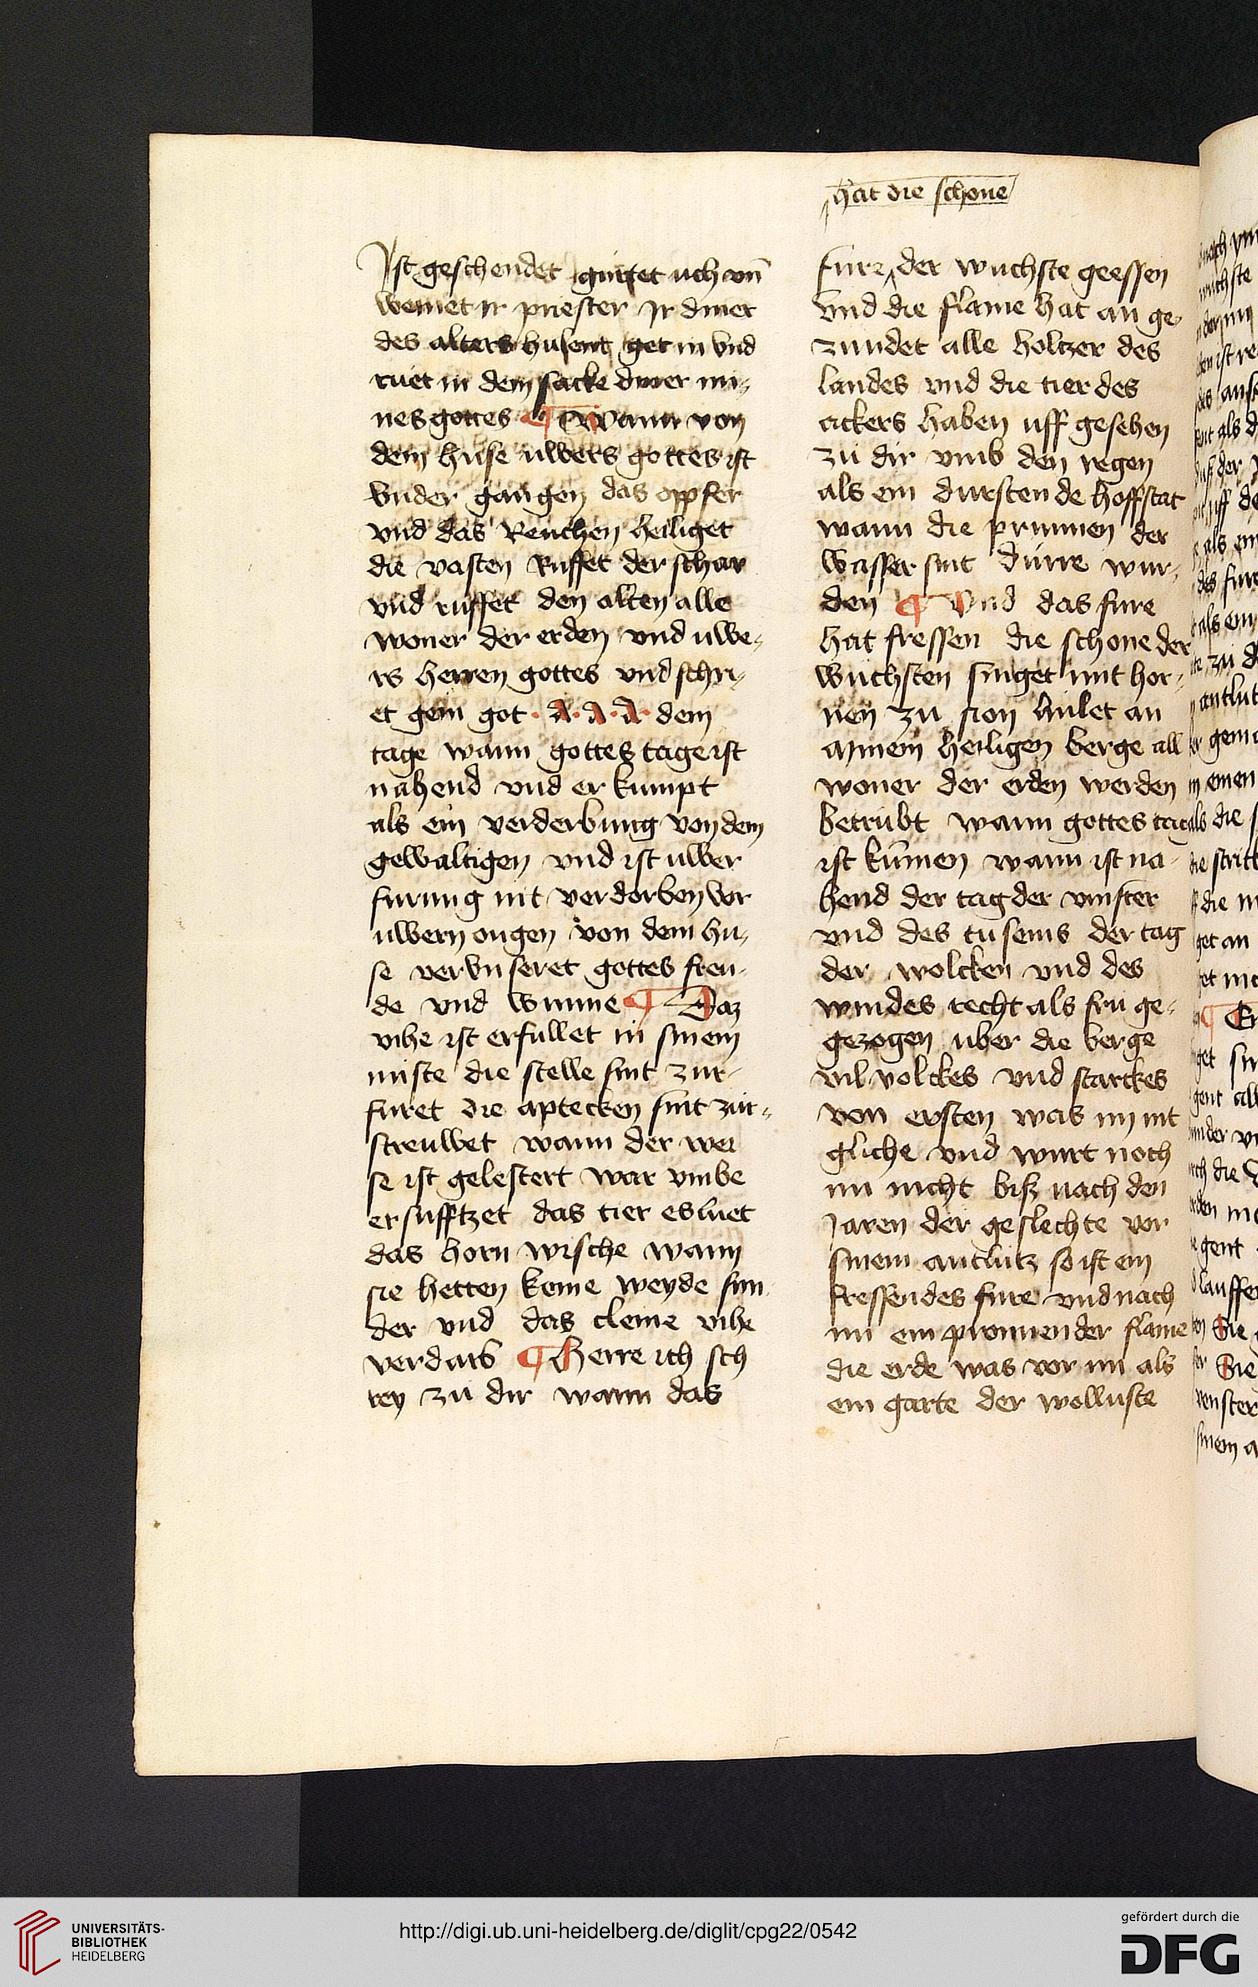 hat die schone
Ist geschendet gurtet uch vnd
weinet ir priester Ir diner
des alters hulent get in vnd
ruet in dem sacke diner mi-
nes gottes ¶ Wann von
dem huse uwers gottes ist
vnder gangen das opfer
vnd das Reuchen heiliget
die vasten Ruffet der schar
vnd ruffet den alten alle
woner der erden vnd uwe-
rs herren gottes vnd schri-
et gein got · A · A · A · dem
tage wann gottes tage ist
nahend vnd er kumpt
als ein verderbung von dem
gewaltigen vnd ist uwer
furung nit verdorben vor
uwern ougen von dem hu-
se verunseret gottes freu-
de vnd wunne ¶ Daz
vihe ist erfullet in sinem
miste die stelle sint zur-
furet die aptecken sint zur-
streuwet wann der wei
se ist gelestert war vmbe
ersufftzet das tier es luet
das horn vische wann
sie hetten keine weyde sun
der vnd das cleine vihe
verdarb ¶ Herre ich sch
rey zu dir wann das
fure der wuchste geessen
vnd die flame hat an ge-
zundet alle holtzer des
landes vnd die tier des
ackers haben uff gesehen
zu dir vmb den regen
als ein durstende hoffstat
wann die prunnen der
wasser sint durre wur-
den ¶ Vnd das fure
hat fressen die schone der
wuchsten singet mit hor-
nen zu sion hulet an
minem heiligen berge all
woner der erden werden
betrubt wann gottes tag
ist kumen wann ist na-
hend der tag der vinster
vnd des tusenis der tag
der wolcken vnd des
windes recht als fru ge-
gezogen uber die berge
vil volckes vnd starckes
von ersten was im nit
gliche vnd wurt noch
im nicht bisz nach den
Jaren der geslechte vor
sinem antlutz so ist ein
fressendes fure vnd nach
im ein pronnender flame
die erde was vor im als
ein garte der wolluste
UNIVERSITÄTS-
BIBLIOTHEK
HEIDELBERG
http://digi.ub.uni-heidelberg.de/diglit/cpg22/0542
gefördert durch die
DFG